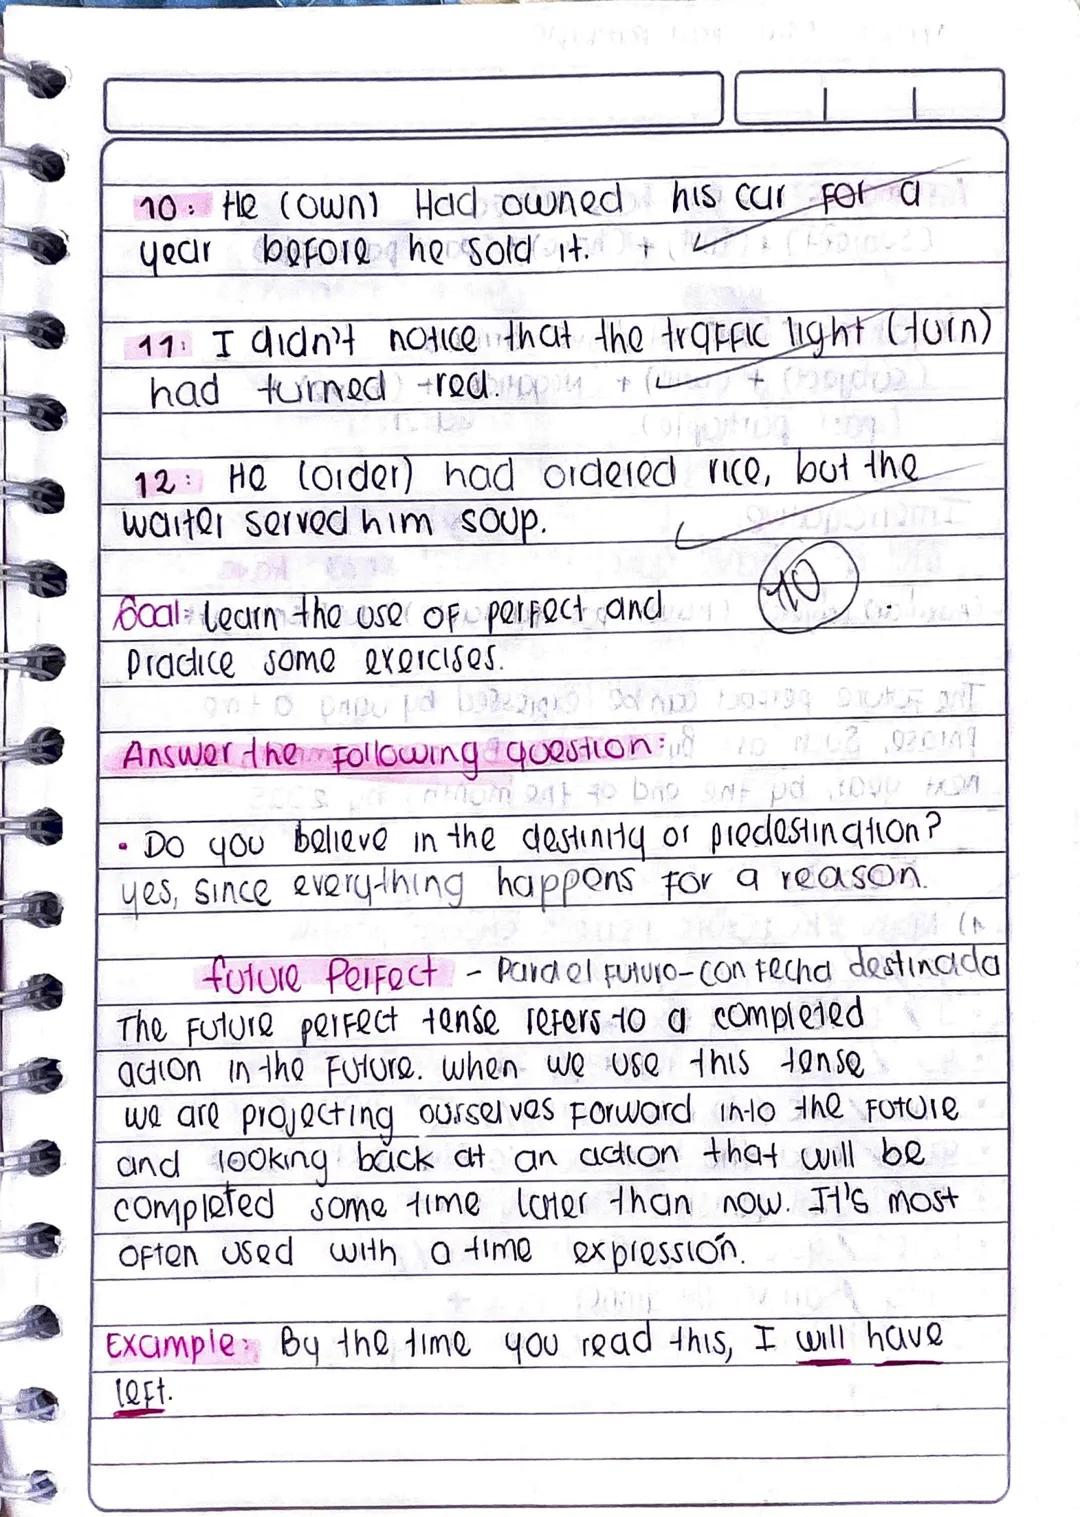 10: He (own) Had owned his car for a
year before he sold it. +
11: I didn't notice that the traffic light (turn)
had turned red.
12: He (order) had ordered rice, but the
waiter served him soup.
10
Goal: Learn the use of perfect and
practice some exercises.
Answer the following question:
• Do you believe in the destinity or predestination?
yes, since everything happens for a reason.
future Perfect - Para el futuro - con fecha destinada
The future perfect tense refers to a completed
action in the future. when we use this tense
we are projecting ourselves forward into the future
and looking back at an action that will be
completed some time later than now. It's most
often used with a time expression.
Example: By the time you read this, I will have
left.